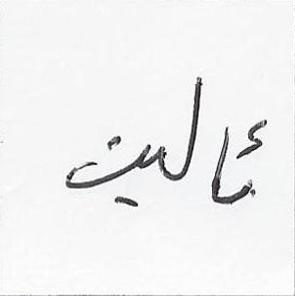 ئاليت